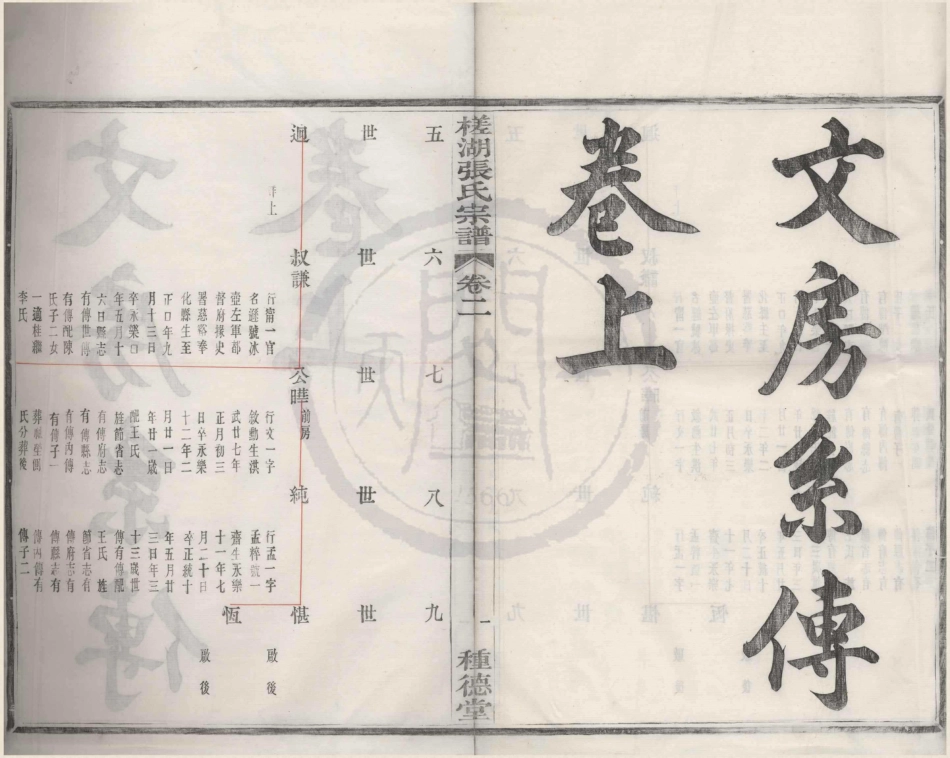 文房系傳
卷上
槎湖張氏宗譜
卷二
一
種德堂
五
世
迥
六
世
叔謙
行甯一官
名遜號冰
壺左軍都
督府掾史
署慈谿奉
化縣生至
正口年九
月十三日
卒永樂口
年五月十
六日縣志
有傳世傳
有傳配陳
氏子二女
一適桂
李氏
七
世
公曄
行文一字
敘勳生洪
武廿七年
正月初三
日卒永樂
十二年二
月廿一日
年廿一歲
配王氏
旌節省志
有傳府志
有傳縣志
有傳內傳
有傳子一
氏分葬後
八
世
純
行孟一字
孟粹號一
齋生永樂
十一年七
月二十日
卒正統十
年五月廿
三日年三
十三歲世
傳有傳配
王氏 旌
節省志有
傳府志有
傳縣志有
傳內傳有
傳子二
九
世
愖
啟後
恆
啟後